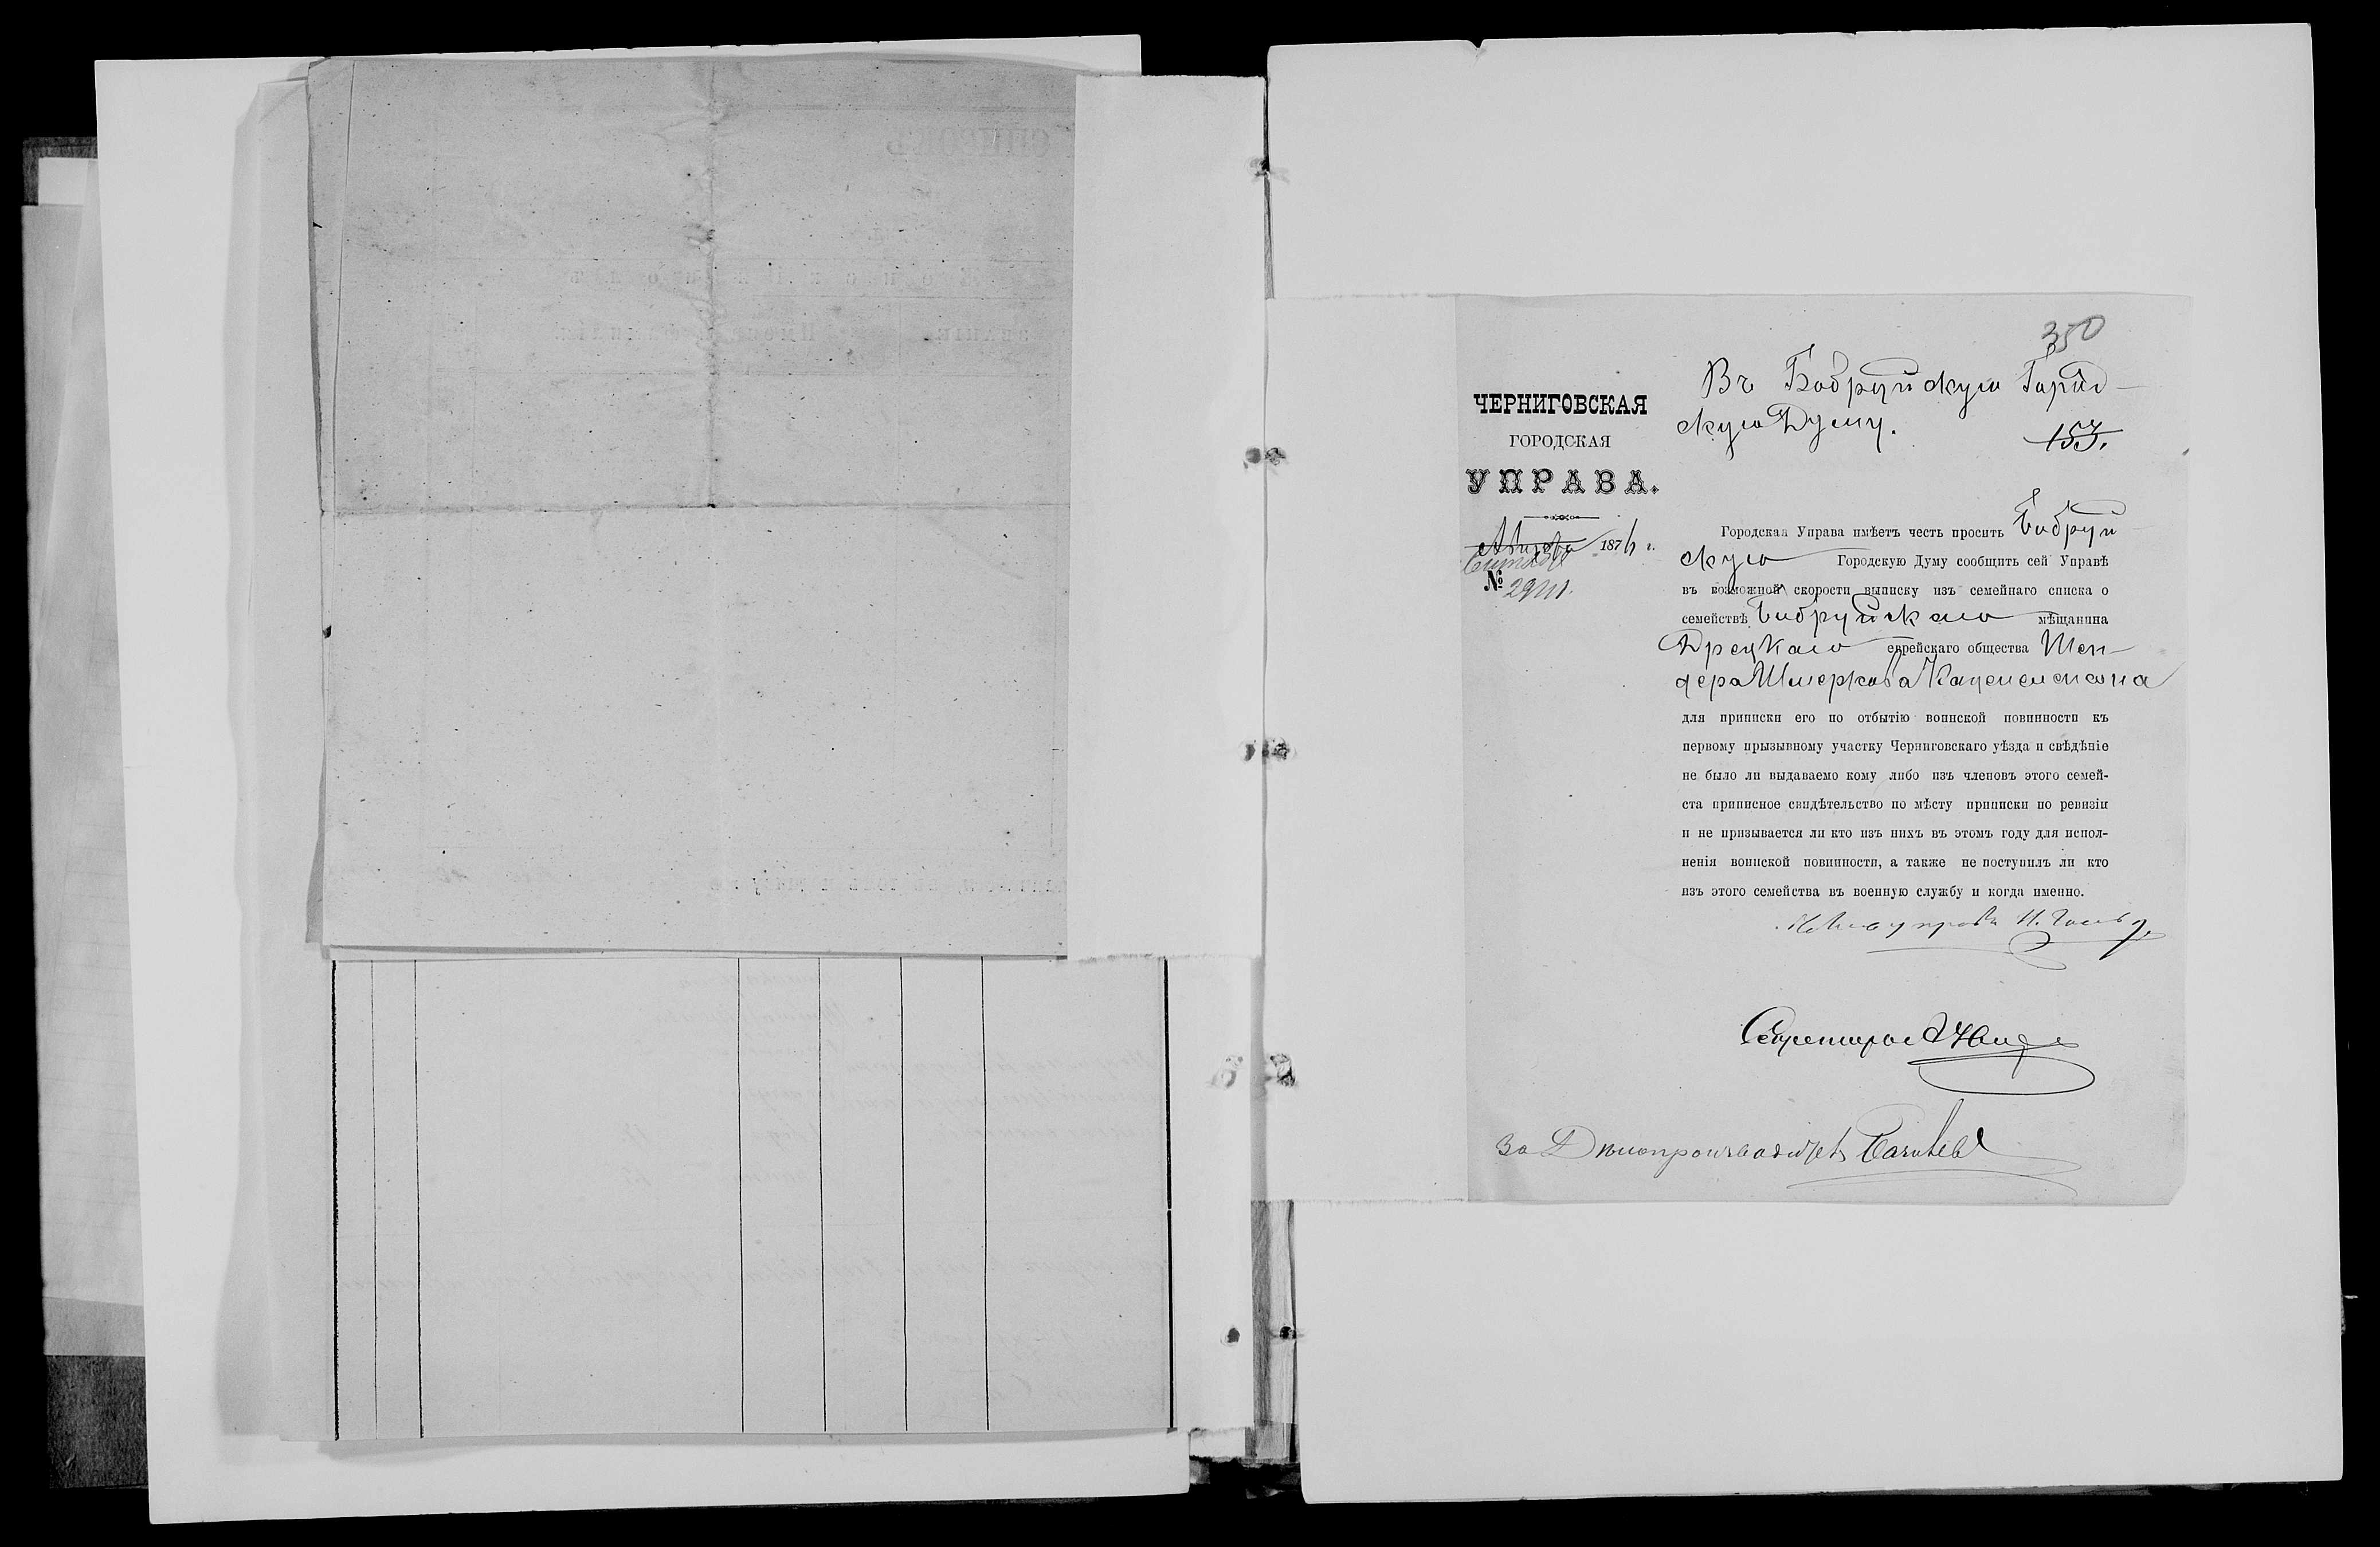 350
Въ Бобруйскую Город-
скую Думу.
153.
ЧЕРНИГОВСКАЯ
ГОРОДСКАЯ
УПРАВА.
Августа 187 г.
Сентября
№
Городская Управа имѣетъ честь просить Бобруй
скую Городскую Думу сообщить сей Управѣ
въ возможной скорости выписку изъ семейнаго списка о
семействѣ Бобруйскаго мѣщанина
еврейскаго общества Шен-
дера Шмеркова Каценельсона
для приписки его по отбытію воинской повинности къ
первому призывному участку Черниговскаго уѣзда и свѣдѣніе
не было ли выдаваемо кому либо изъ членовъ этого семей-
ста приписное свидѣтельство по мѣсту приписки по ревизіи
и не призывается ли кто изъ нихъ въ этомъ году для испол-
ненія воинской повинности, а также не поступилъ ли кто
изъ этого семейства въ военную службу и когда именно.
Членъ управы Н.
Секретарь
За Дѣлопроизводителя